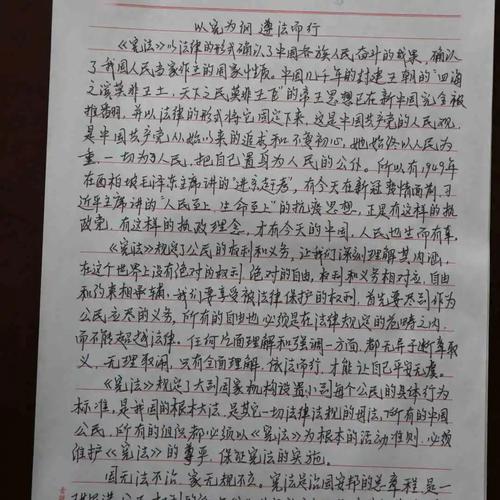 以宪为纲 遵法而行
《宪法》以法律的形式确认了中国各族人民奋斗的成果，确认
了我国人民当家作主的国家性质。中国几千年的封建王朝的“四海
之滨莫非王土，天下之民莫非王臣”的帝王思想已在新中国完全被
推翻，并以法律的形式将它固定下来，这是中国共产党的人民观，
是中国共产党从始以来的追求和不变初心，她始终以人民为
重，一切为了人民，把自己置身为人民的公仆。所以有，1949年
在西柏坡毛泽东主席讲的“进京赶考”，有今天在新冠疫情面前，习
近平主席讲的“人民至上，生命至上”的抗疫思想，正是有这样的执
政党，有这样的执政理念，才有今天的中国，人民也生而有幸。
《宪法》规定了公民的权利和义务，让我们深刻理解其内涵，
在这个世界上没有绝对的权利，绝对的自由，权利和义务相对应，自由
和约束相承辅，我们要享受被法律保护的权利，首先要尽到作为
公民应尽的义务，所有的自由也必须是在法律规定的范畴之内，
而不能超越法律。任何片面理解和强调一方面，都无异于断章取
义，无理取闹，只有全面理解，依法而行，才能让自己平安无虞。
《宪法》规定了大到国家机构设置小到每个公民的具体行为
标准，是我国的根本大法，是其它一切法律法规的母法，所有的中国
公民，所有的组织都必须以《宪法》为根本的活动准则，必须
维护《宪法》的尊严，保证宪法的实施。
国无法不治，家无规不立。宪法是治国安邦的总章程，是一